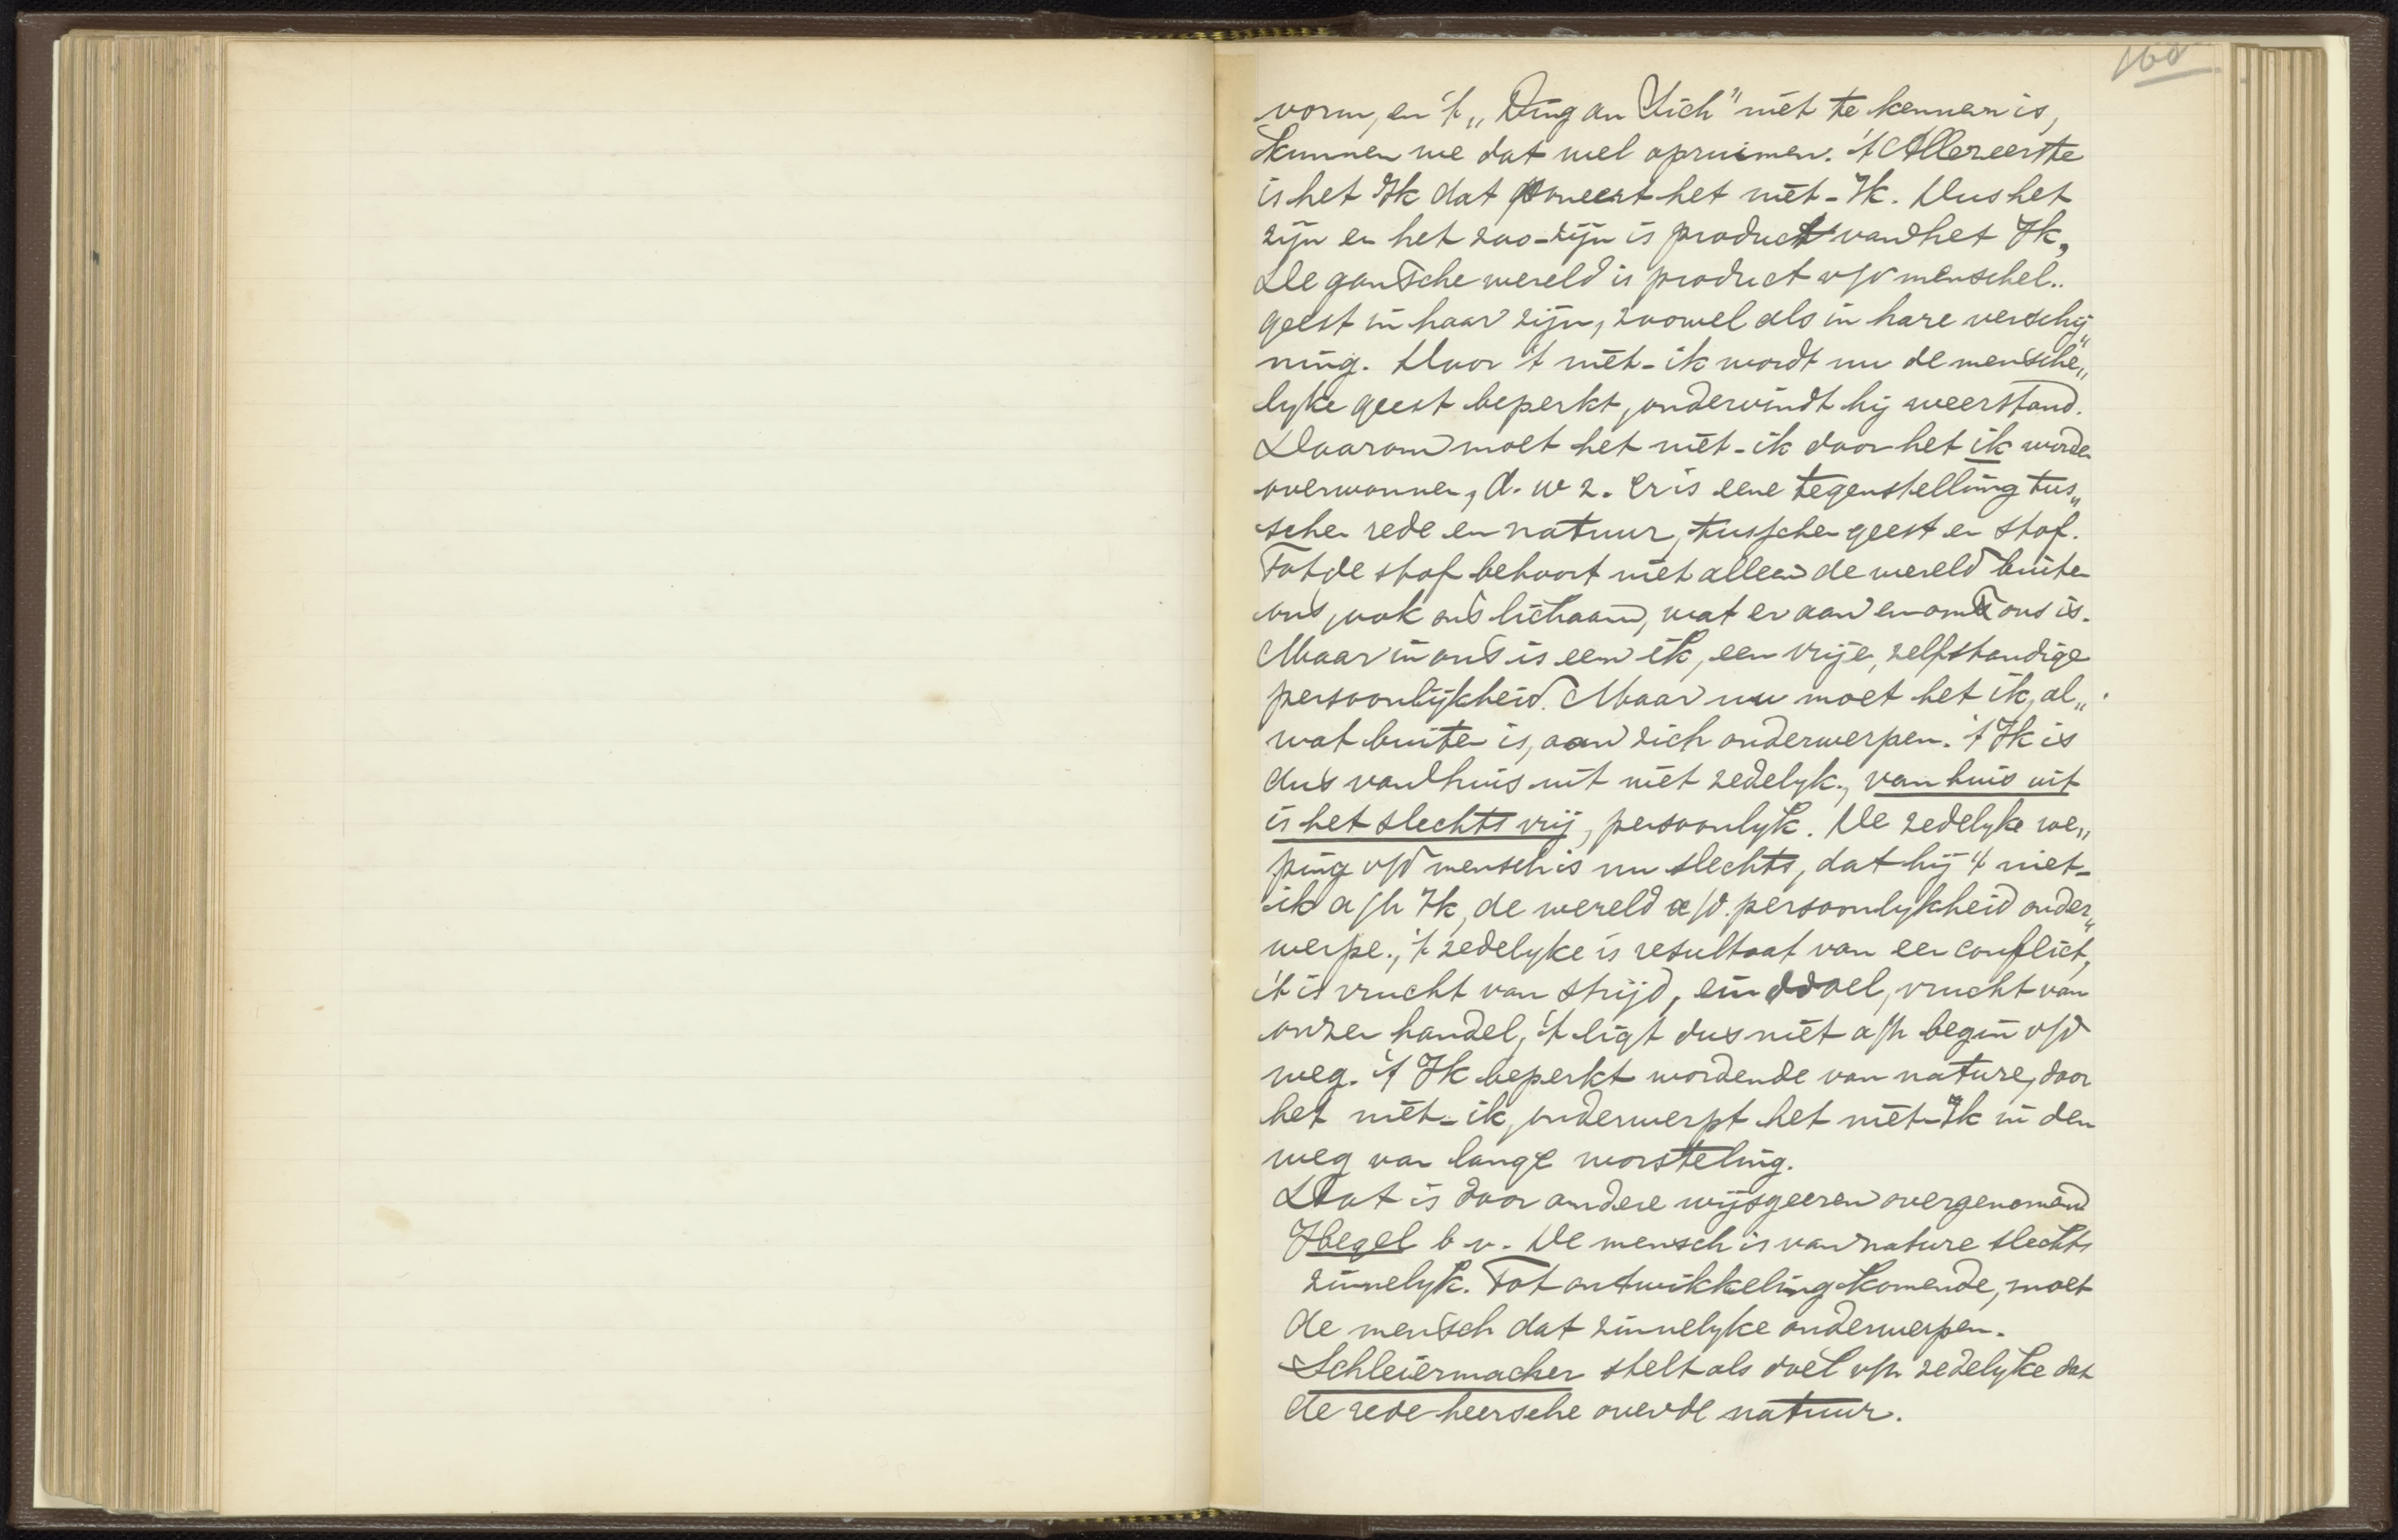 160
vorm, en 't „Ding an Sich" niet te kennen is,
kunnen we dat wel opruimen. 't Allereerste
is het Ik dat poneert het niet-Ik. Dus het
zijn en het zoo-zijn is product van het Ik,
De gansche wereld is product v/d menschel..
geest in haar zijn, zoowel als in hare verschij„
ning. Door 't niet-ik wordt nu de mensche„
lyke geest beperkt, ondervindt hij weerstand.
Daarom moet het niet-ik door het ik worden
overwonnen, d. w z. er is eene tegenstelling tus„
schen rede en natuur, tusschen geest en stof.
Tot de stof behoort niet alleen de wereld buiten
ons, ook ons lichaam, wat er aan en om ons is.
Maar in ons is een ik, een vrije, zelfstandige
persoonlijkheid. Maar nu moet het ik, al„
wat buiten is, aan zich onderwerpen. 't Ik is
dus van huis uit niet zedelyk., van huis uit
is het slechts vrij, persoonlyk. De zedelyke roe„
ping v/d mensch is nu slechts, dat hij 't niet-
ik a/h Ik, de wereld a/d. persoonlykheid onder„
werpe., 't zedelyke is resultaat van een conflict,
't is vrucht van strijd, einddoel, vrucht van
onzen handel, 't ligt dus niet a/h begin v/d
weg. 't Ik beperkt wordende van nature, door
het niet-ik, onderwerpt het niet-Ik in den
weg van lange worsteling.
Dat is door andere wijsgeeren overgenomen
Hegel b v. De mensch is van nature slechts
zinnelyk. Tot ontwikkeling komende, moet
de mensch dat zinnelyke onderwerpen.
Schleiermacher stelt als doel v/h zedelyke dat
de rede heersche over de natuur.